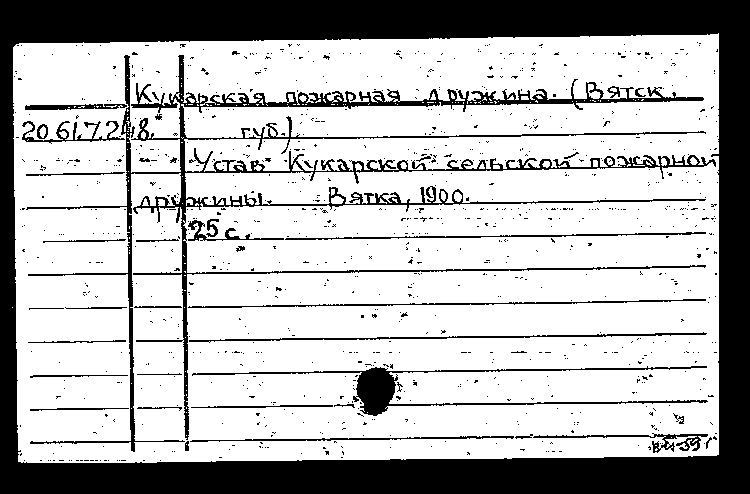 Кукарская пожарная дружина. (Вятск.
20.61.7.248. губ.)
Устав Кукарской сельской пожарной
дружины. Вятка, 1900.
25 с.